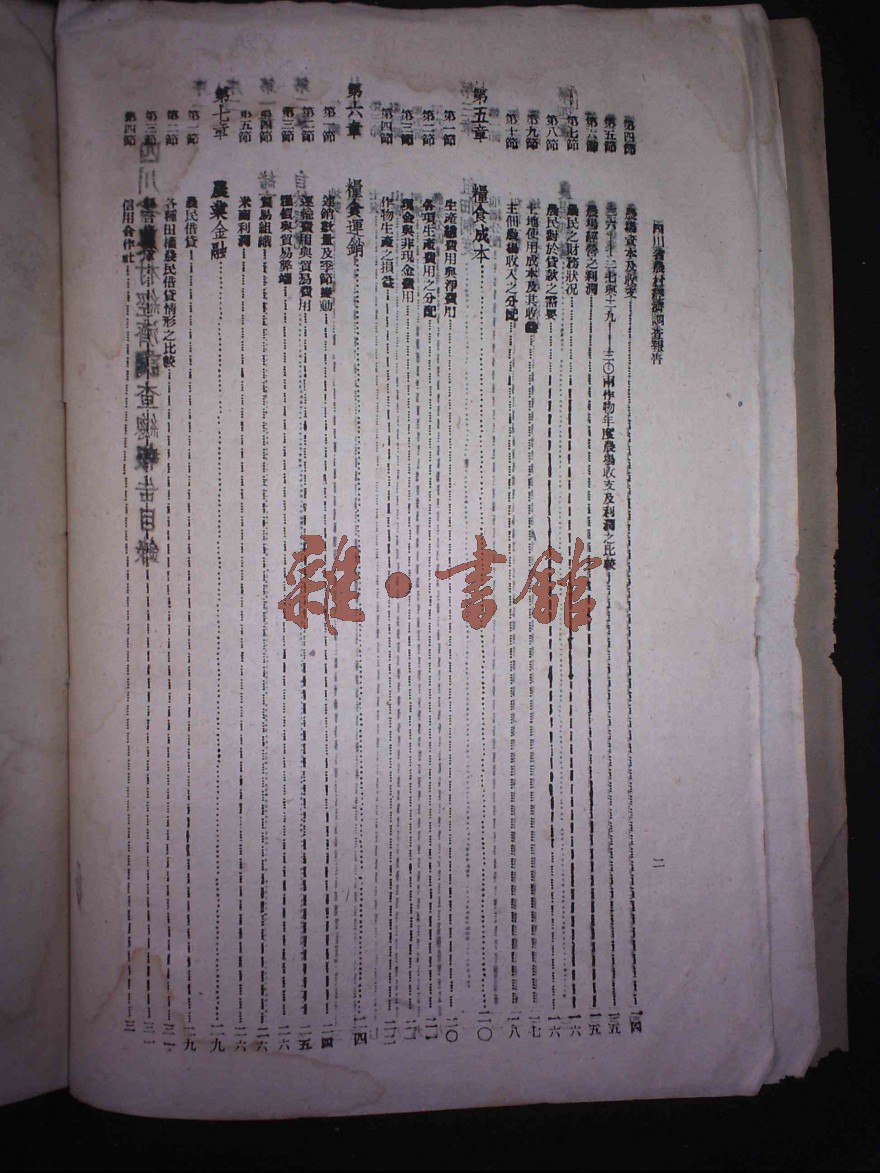 四川省農村經濟調查報告
二
第四節 農場資本及收支 一四
第五節 一五
第六節 農場經營之利潤 一五
第七節 農民之財務狀況 一六
第八節 農民對於貸款之需要 一六
第九節 土地使用成本及其收益 一七
第十節 主佃農場收入之分配 一八
第五章 糧食成本 二〇
第一節 生產總費用與淨費用 二〇
第二節 各項生產費用之分配 二一
第三節 現金與非現金費用
第四節 作物生產之損益
第六章 糧食運銷 二四
第一節 運銷數量及季節變動 二四
第二節 運輸費用與貿易費用 二五
第三節 糧價與貿易弊端 二六
第四節 貿易組織 二六
第五節 米商利潤 二六
第七章 農業金融 二九
第一節 農民借貸 二九
第二節 各種田權農民借貸情形之比較 三一
第三節 三一
第四節 信用合作社
雜·書館
四川省農村經濟調查總報告目錄